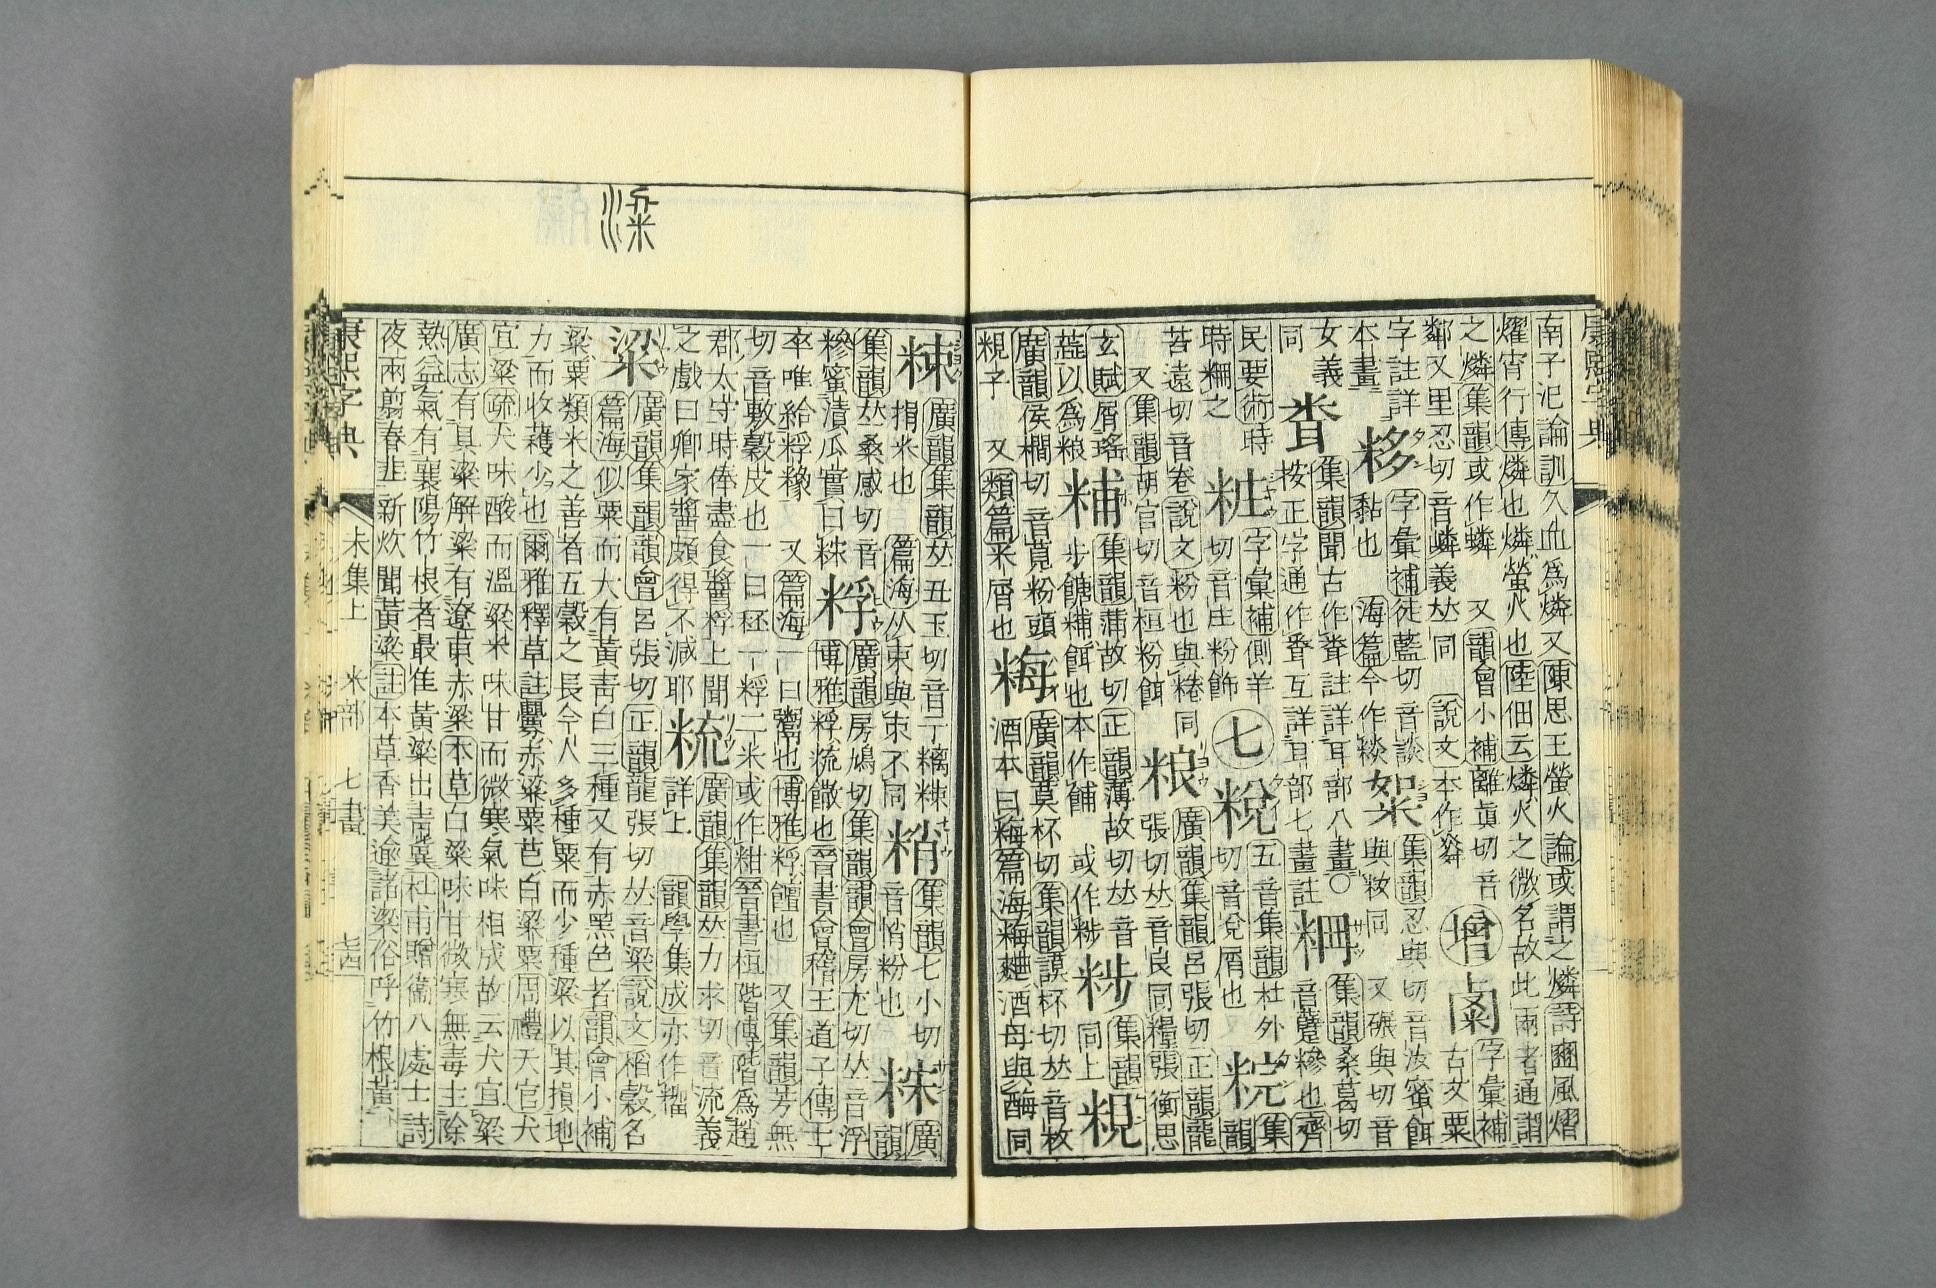 南子汜論訓久血爲燐又陳思王螢火論或謂之燐詩豳風熠
燿宵行傳燐也燐螢火也陸佃云燐火之微名故此兩者通謂
之燐集韻或作蟒 又韻會小補離眞切音
鄰又里忍切音嶙義𠀤同 說文本作粦
增
字彙補
古文粟
字註詳
本畫
䊠
字彙補徒藍切音談
黏也 海篇今作
集韻忍與切音汝蜜餌
與籹同 又碾與切音
女義
同
集韻聞古作 註詳耳部八畫○
按正字通作 互詳耳部七畫註
粣
集韻桑葛切
音躠糝也齊
民要術時
時粣之
粧
字彙補側羊
切音庄粉飾
七
䊝
五音集韻杜外
切音兌屑也
䊐
集韻
苔遠切音卷說文粉也與䊎同
又集韻胡官切音桓粉餌
粮
廣韻集韻呂張切正韻龍
張切𠀤音良同糧張衡思
玄賦屑瑤
蘂以爲粮
䊇
集韻蒲故切正韻薄故切𠀤音
步餹䊇餌也本作餔 或作䉵
䉵
集韻
同上
粯
廣韻侯櫚切音莧粉頭
粯子 又類篇米屑也
䊈
廣韻莫杯切集韻謨杯切𠀤音枚
酒本曰䊈篇海䊈䊈酒母與酶同
𥹜
廣韻集韻𠀤丑玉切音亍𥻿𥹜
㨂米也 篇海从束與朿不同
䊥
集韻七小切
音悄粉也
䊉
廣韻
集韻𠀤桑感切音
糝蜜漬瓜實曰䊉
䊔
廣韻房鳩切集韻韻會房尤切𠀤音浮
博雅䊔䊗饊也晉書會稽王道子傳王
卒唯給䊔䊗 又篇海一曰粥也博雅䊔饘也 又集韻芳無
切音敷穀皮也一曰秠一䊔二米或作柎晉書桓階傳階爲趙
郡太守時俸盡食醬䊔上聞
之戲曰卿家醬頗得不減耶
䊗
廣韻集韻𠀤力求切音流義
詳上 韻學集成亦作𥼫
粱
廣韻集韻韻會呂張切正韻龍張切𠀤音梁說文稻穀名
篇海似粟而大有黃靑白三種又有赤黑色者韻會小補
粱粟類米之善者五穀之長今人多種粟而少種粱以其損地
力而收穫少也爾雅釋草註虋赤粱粟芑白粱粟周禮天官犬
宜粱疏犬味酸而溫粱米味甘而微寒氣味相成故云犬宜粱
廣志有具粱解粱有遼東赤粱本草白粱味甘微寒無毒主除
熱益氣有襄陽竹根者最佳黃粱出靑冀杜甫贈衞八處士詩
夜雨翦春韭新炊聞黃粱註本草香美逾諸粱俗呼竹根黃
康熙字典
未集上
米部
七畫